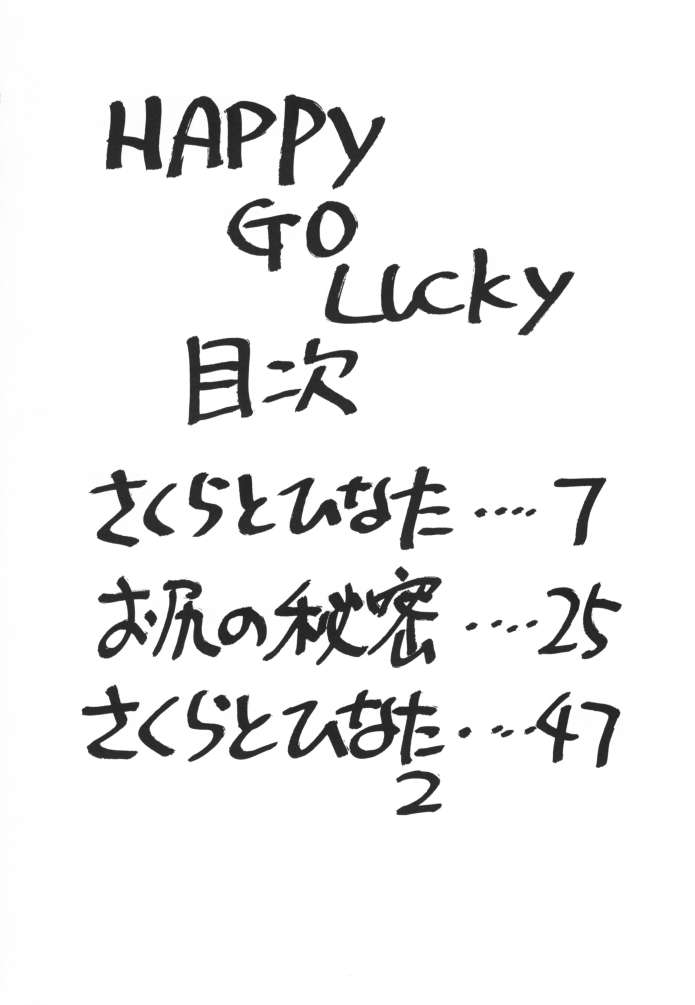 HAPPY
GO
LUCKY
目次
さくらとひなた‥‥7
お尻の秘密‥‥25
さくらとひなた‥‥47
2